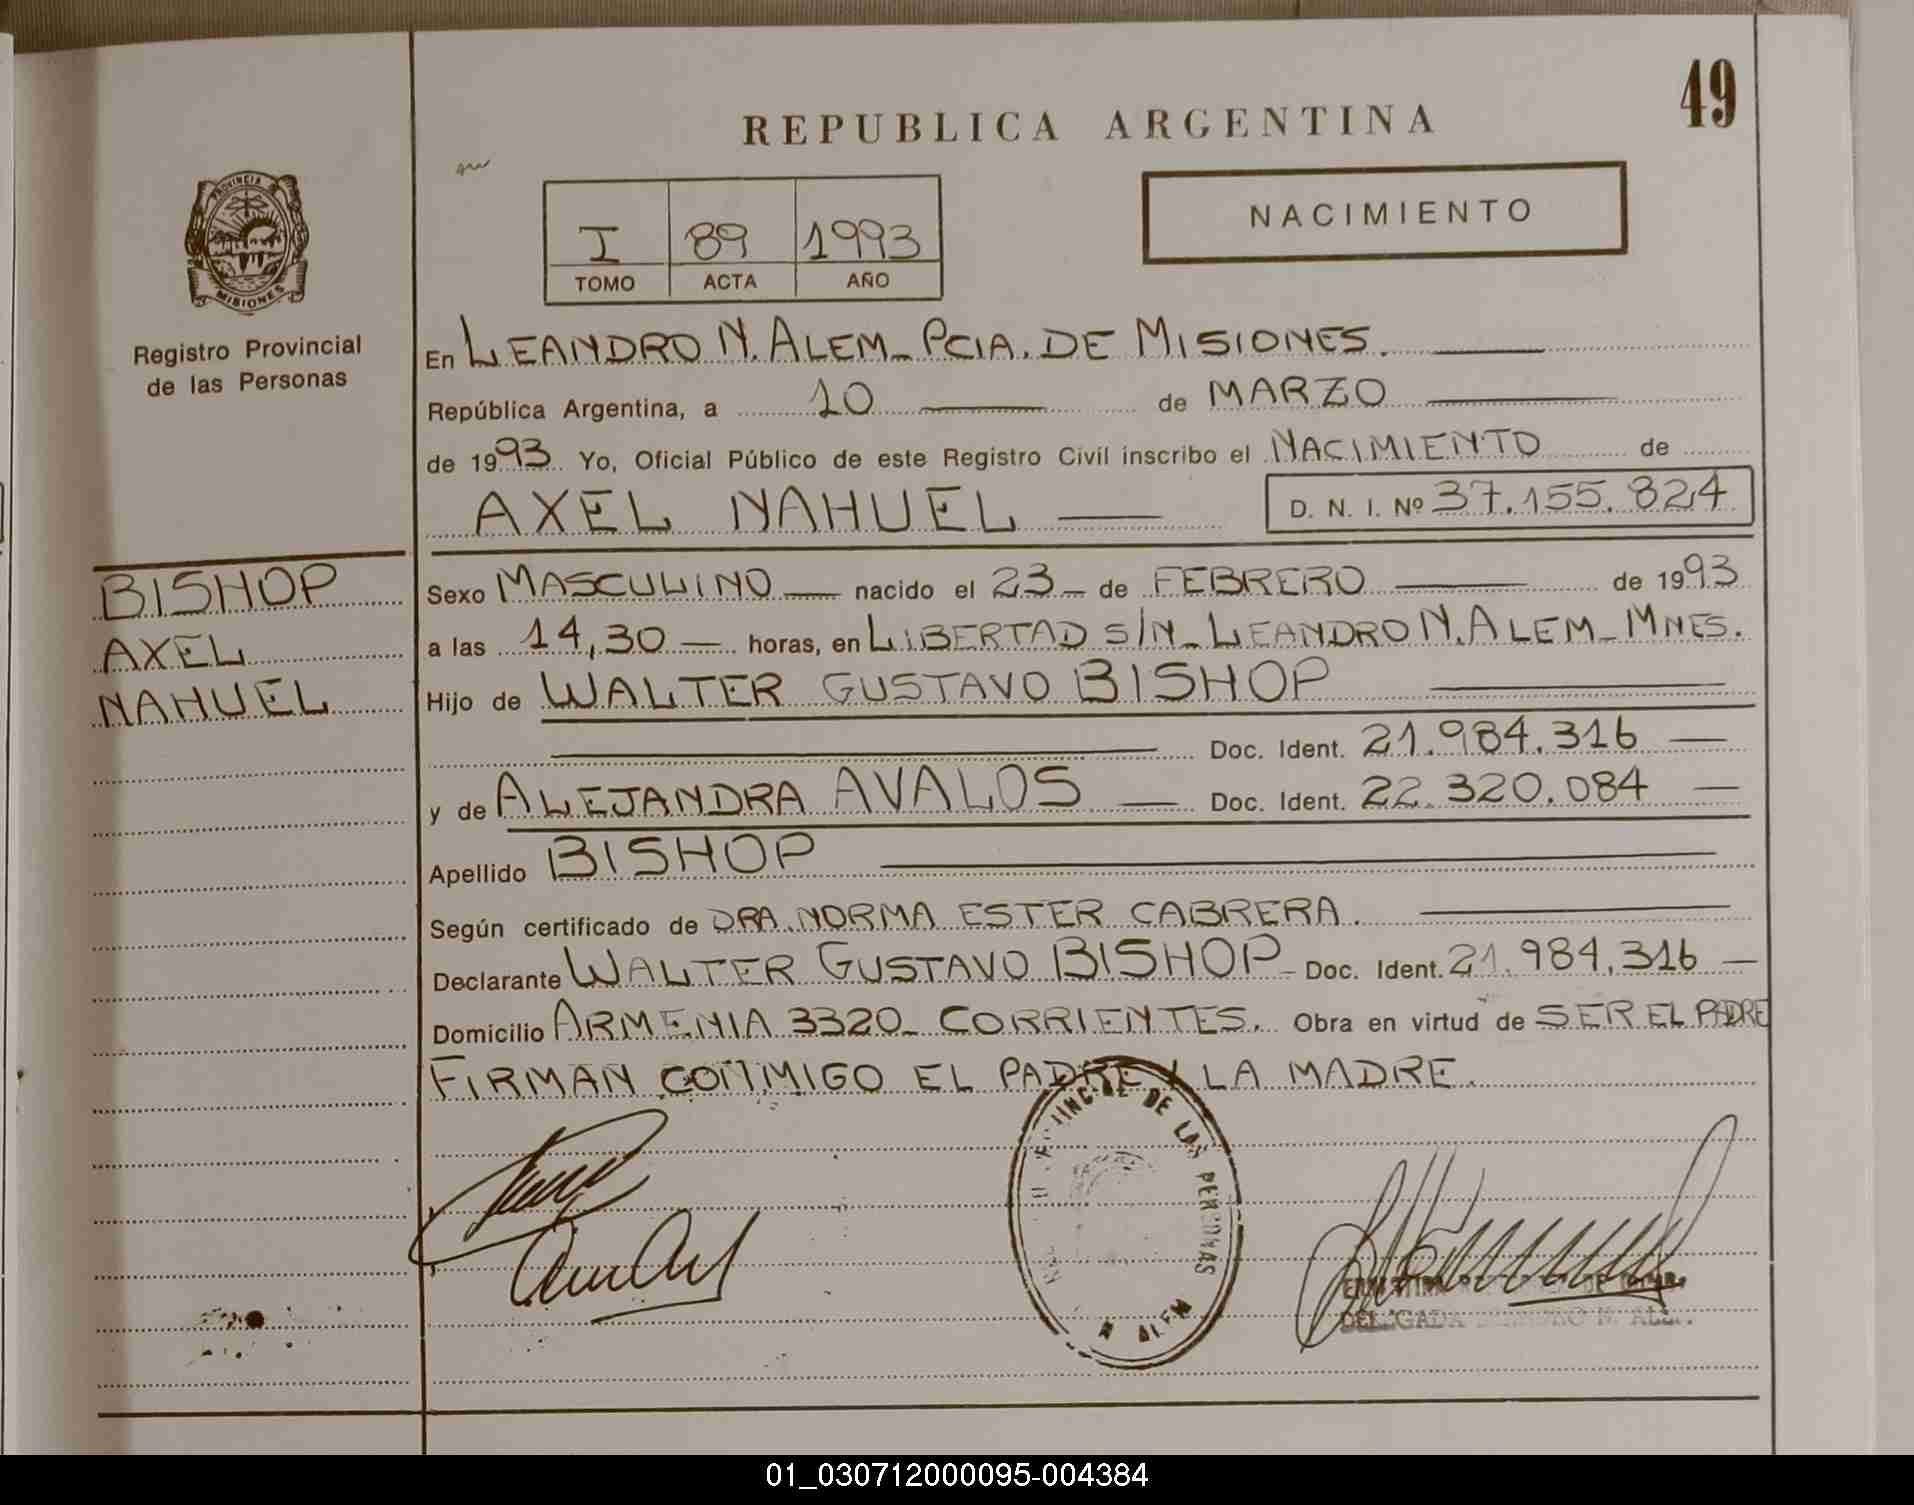 49
REPUBLICA ARGENTINA
PROVINCIA DE
MISIONES
Registro Provincial
de las Personas
I 89 1993
TOMO ACTA AÑO
NACIMIENTO
En LEANDRO N. ALEM_ PCIA. DE MISIONES.
República Argentina, a 10 de MARZO
de 1993 Yo, Oficial Público de este Registro Civil inscribo el NACIMIENTO de
AXEL NAHUEL D. N. I. Nº 37.155.824
BISHOP
AXEL
NAHUEL
Sexo MASCULINO nacido el 23 de FEBRERO de 1993
a las 14,30 horas, en LIBERTAD S/N_ LEANDRO N. ALEM_ MNES.
Hijo de WALTER GUSTAVO BISHOP
Doc. Ident. 21.984.316
y de ALEJANDRA AVALOS Doc. Ident. 22.320.084
Apellido BISHOP
Según certificado de DRA. NORMA ESTER CABRERA.
Declarante WALTER GUSTAVO BISHOP Doc. Ident. 21.984.316
Domicilio ARMENIA 3320_ CORRIENTES. Obra en virtud de SER EL PADRE
FIRMAN CONMIGO EL PADRE Y LA MADRE.
DE LAS PERSONAS
N ALEM
01_030712000095-004384